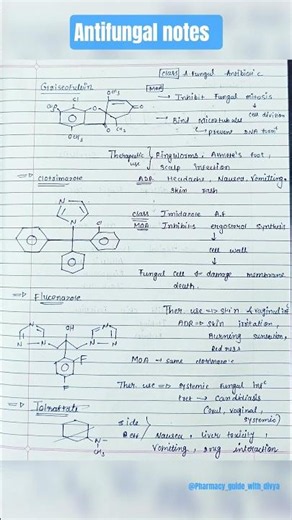 Antifungal notes
Class Antifungal Antibiotic
Griseofulvin
MOA
OCH3
Cl
CH3O
OCH3
CH3
O
→ Inhibit Fungal mitosis
↓
cell division
→ Bind Microtubules
prevent DNA form
Therapeutic use
Ringworms, Athlete's foot,
scalp infection
⇒ Clotrimazole
ADR Headache, Nausea, Vomiting
skin rash
N
N
Cl
Class Imidazole A.f
MOA Inhibits ergosterol synthesis
↓
cell wall
↓
Fungal cell & damage membrane
death.
⇒ Fluconazole
Ther. use ⇒ skin & vaginal inf
ADR ⇒ skin irritation,
Burning sensation,
Redness
N
N
N
OH
N
N
N
F
F
MOA → same clotrimazole
Ther. use ⇒ systemic Fungal Inf
⇒ Candidiasis
(oral, vaginal,
systemic)
⇒ Tolnaftate
N
side
Effect
Nausea, liver toxicity,
Vomiting, drug interaction
@Pharmacy_guide_with_divya